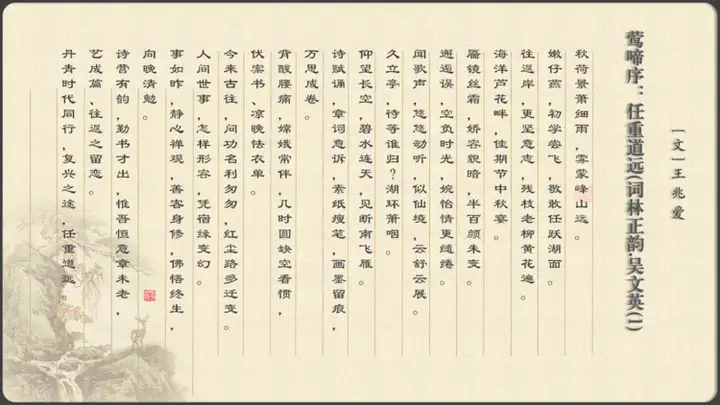 莺啼序：任重道远(词林正韵·吴文英(一)
（文）王兆爱
秋荷景萧细雨，雾蒙峰山远。
嫩仔燕，初学尝飞，敬敢任跃湖面。
往返岸，更坚意志，残枝老柳黄花遍。
海洋芦花畔，佳期节中秋宴。
靥镜丝霜，娇容貌暗，半百颜朱变。
邂逅误，空负时光，婉怡情更缱绻。
闻歌声，悠悠动听，似仙境，云舒云展。
久立亭，待等谁归？湖环萧咽。
仰望长空，碧水连天，见断南飞雁。
诗赋诵，章词意诉，素纸瘦笔，画墨留痕，
万思成卷。
背酸腰痛，嫦娥常伴，几时圆缺空看惯，
伏案书、凉晚怯衣单。
今来古往，问功名利匆匆，红尘路多迁变。
人间世事，怎样形容，凭宿缘变幻。
事如昨，静心禅观，善客身修，佛悟终生，
向晚清勉。
诗营有韵，勤书才出，惟吾恒意章未老，
艺成篇、往返之留恋。
丹青时代同行，复兴之途，任重道远。